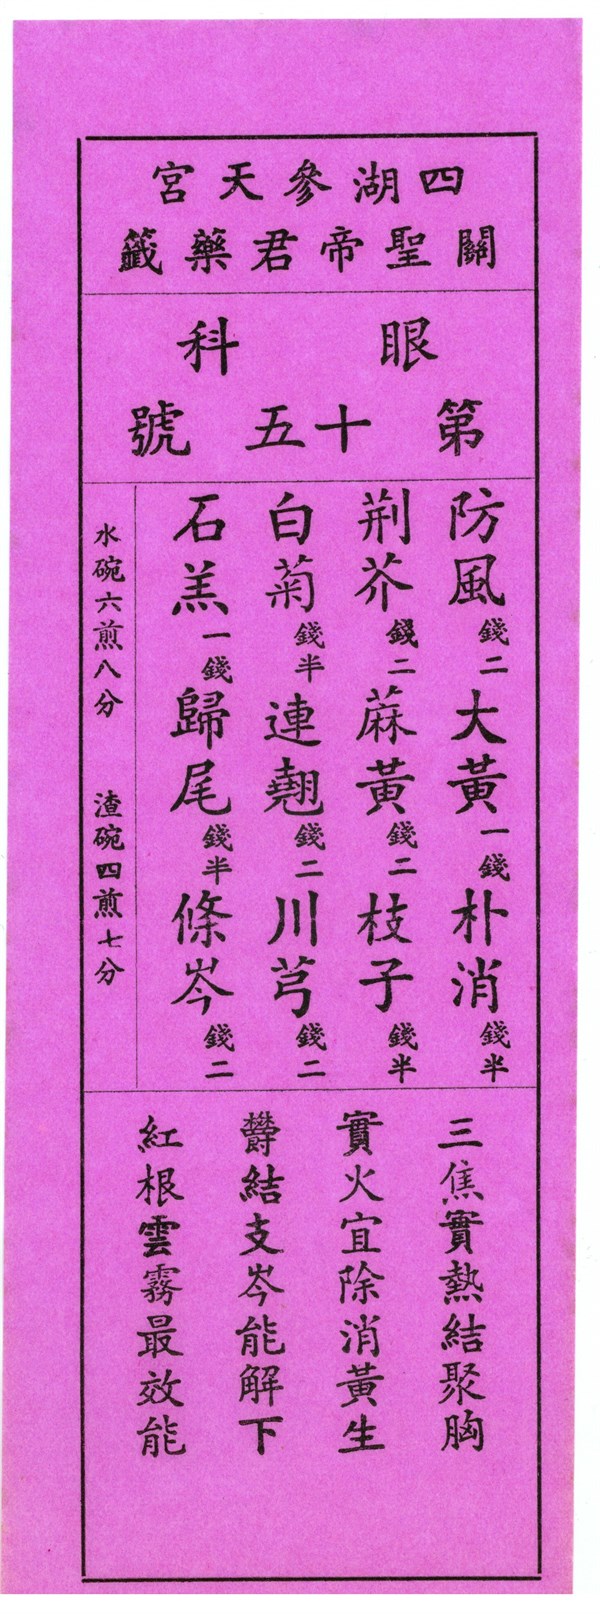 四湖參天宮
關聖帝君藥籤
眼科
第十五號
防風 錢二 大黃 一錢 朴消 錢半
荆芥 錢二 蔴黃 錢二 枝子 錢半
白菊 錢半 連翹 錢二 川芎 錢二
石羔 一錢 歸尾 錢半 條岑 錢二
水碗六煎八分 渣碗四煎七分
三焦實熱結聚胸
實火宜除消黃生
欝結支岑能解下
紅根雲霧最效能